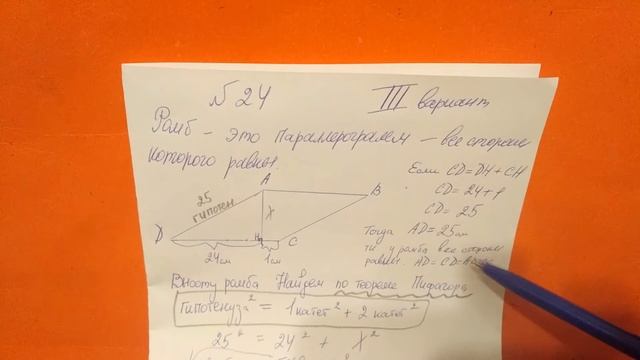 N 24
III вариант
Ромб - это параллерограмм - все стороны
которого равны.
Если CD = DH + CH
CD = 24 + 1
CD = 25
Тогда AD = 25 см
тк у ромба все стороны
равны AD = CD =
A
B
25
гипотен
X
D
H
C
24 см
1 см
Высоту ромба Найдем по теореме Пифагора
Гипотенуза² = 1 катет² + 2 катет²
25² = 24² + X²